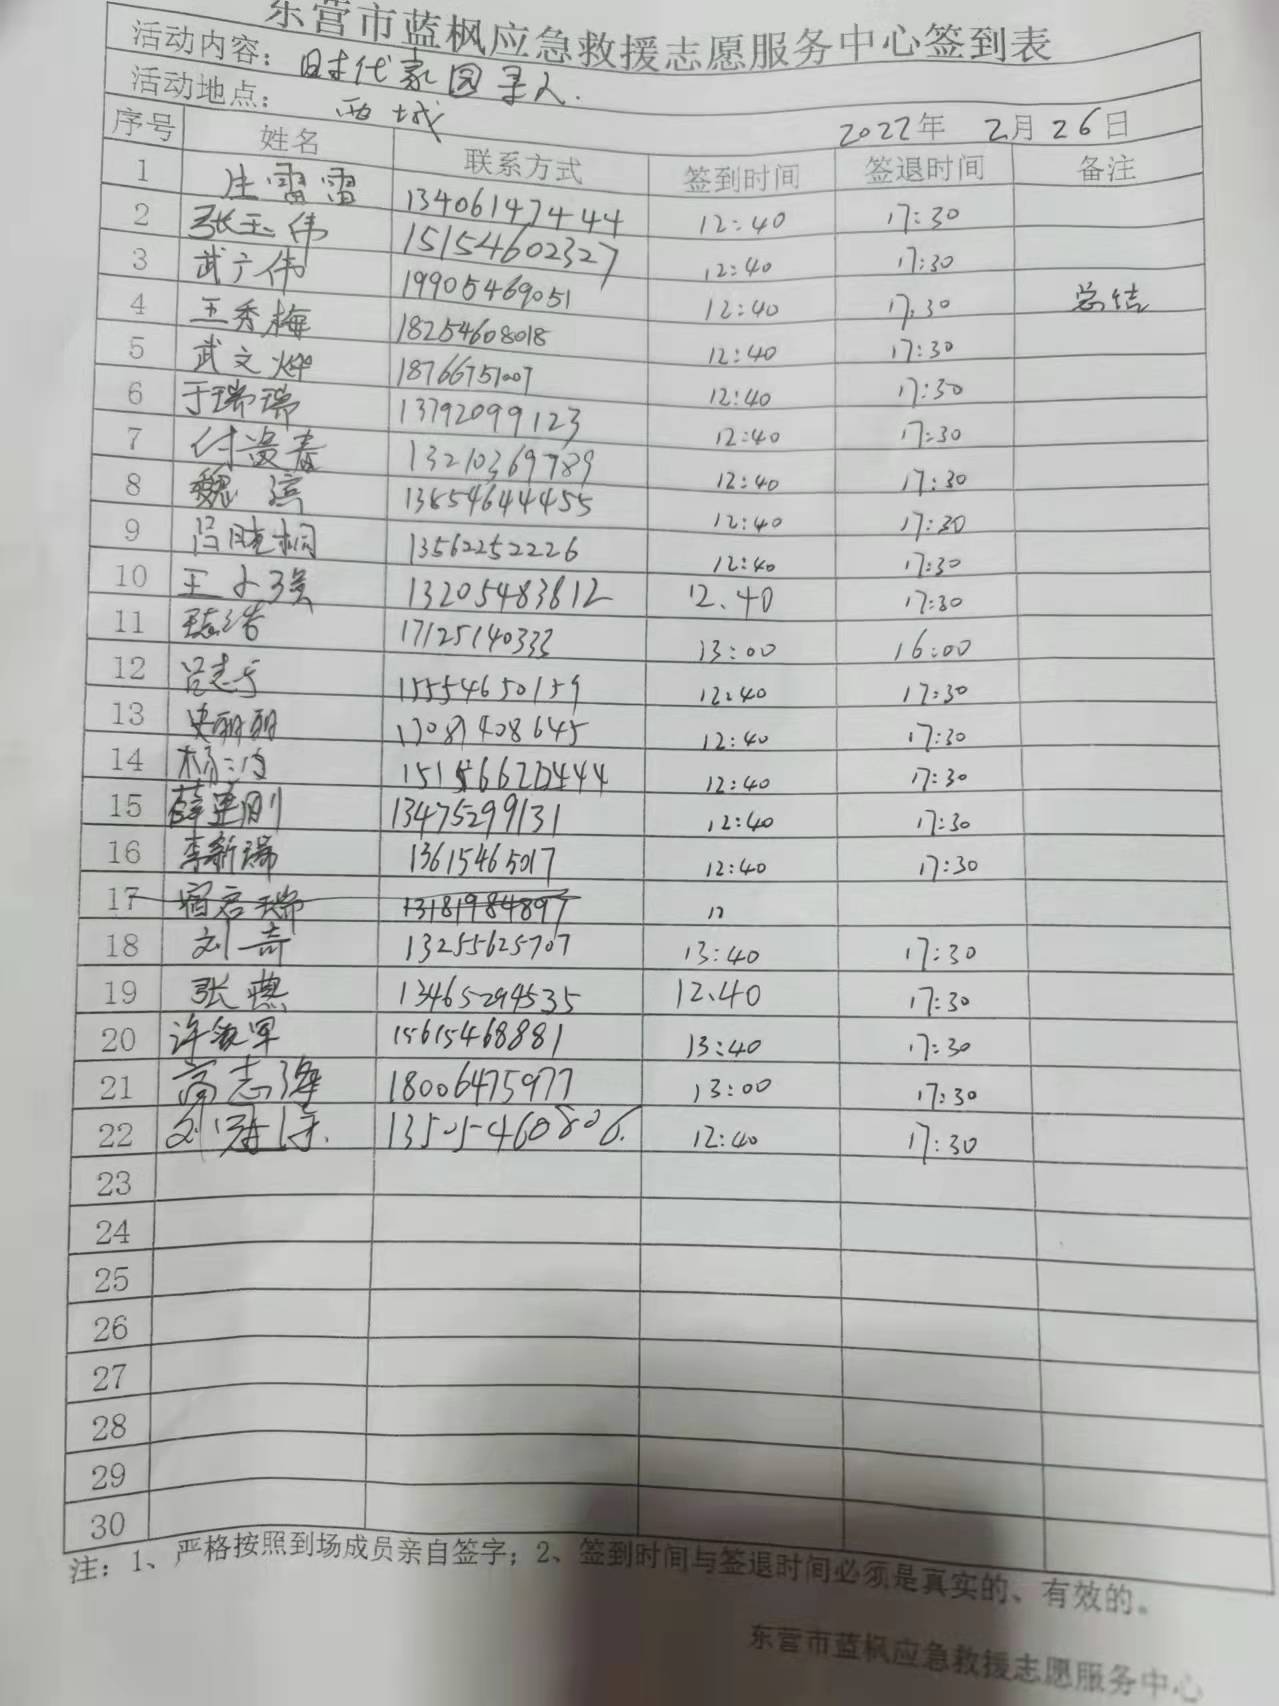 东营市蓝枫应急救援志愿服务中心签到表
活动内容：时代家园录入.
活动地点： 西城 2022年 2月26日
序号 姓名 联系方式 签到时间 签退时间 备注
1 庄雷雷 13406147444 12:40 17:30
2 张玉伟 15154602327 12:40 17:30
3 武广伟 19905469051 12:40 17:30 总结
4 王秀梅 18254608018 12:40 17:30
5 武文烨 18766751007 12:40 17:30
6 于瑞瑞 13792099123 12:40 17:30
7 付凌春 13210369789 12:40 17:30
8 魏滨 13854644455 12:40 17:30
9 吕晓桐 13562252226 12:40 17:30
10 王小强 13205483812 12.40 17:30
11 17125140333 13:00 16:00
12 吕志 15554650159 12:40 17:30
13 史丽丽 12:40 17:30
14 杨 12:40 17:30
15 薛建刚 13475299131 12:40 17:30
16 李新瑞 13615465017 12:40 17:30
17 宿启瑞 13181984897 12
18 刘奇 13255625707 13:40 17:30
19 张燕 13465294535 12.40 17:30
20 许敏军 15615468881 13:40 17:30
21 高志海 18006475977 13:00 17:30
22 刘冠 13505460806. 12:40 17:30
23
24
25
26
27
28
29
30
注：1、严格按照到场成员亲自签字；2、签到时间与签退时间必须是真实的、有效的。
东营市蓝枫应急救援志愿服务中心